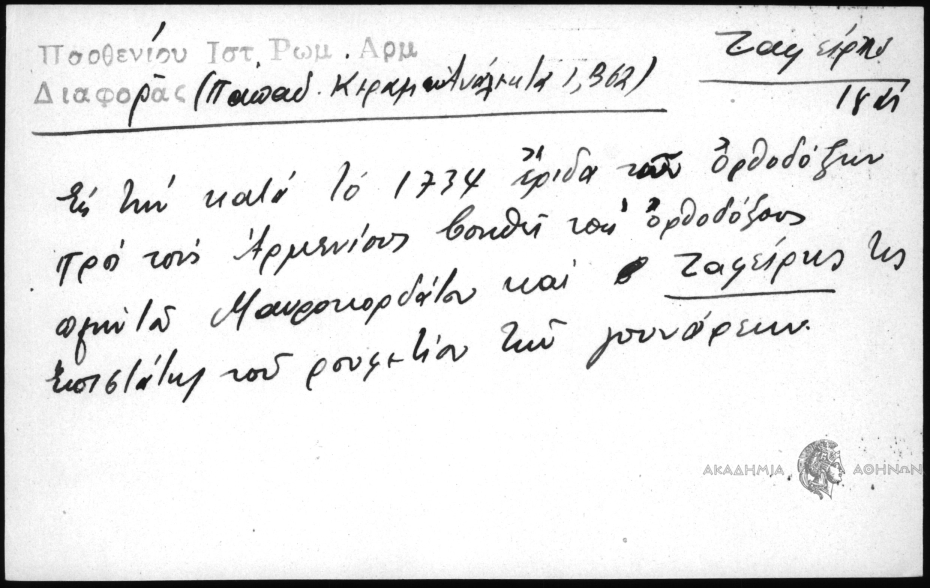 Παρθενίου Ιστ. Ρωμ. Αρμ
Διαφοράς (Παπαδ. Κεραμ Ανάλεκτα 1, 362)
Ζαφείρης
Εις την κατά το 1734 έριδα των ορθοδόξων
προς τους Αρμενίους βοηθεί τους ορθοδόξους
Μαυροκορδάτου και ο Ζαφείρης της
επιστάτης του ρουφετίου των γουναρέων.
ΑΚΑΔΗΜΙΑ ΑΘΗΝΩΝ